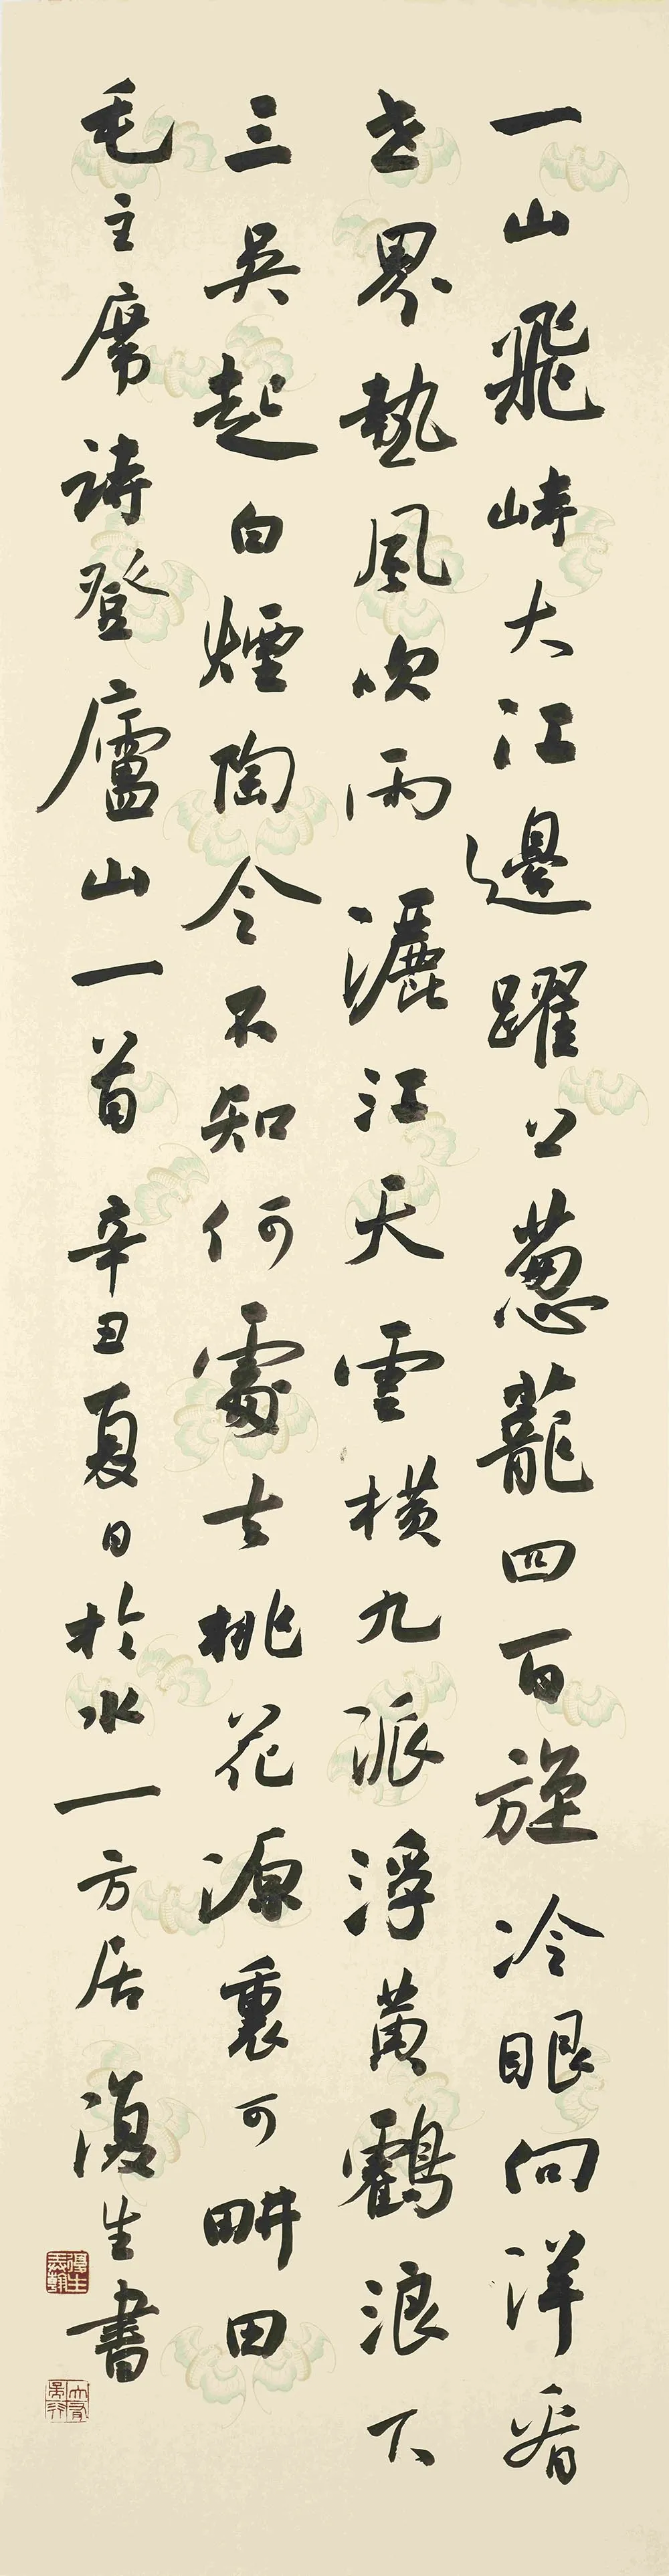 一山飛峙大江邊躍上葱蘢四百旋冷眼向洋看
世界熱風吹雨灑江天雲橫九派浮黄鶴浪下
三吳起白煙陶令不知何處去桃花源裏可畊田
毛主席詩登廬山一首辛丑夏日於水一方居復生書